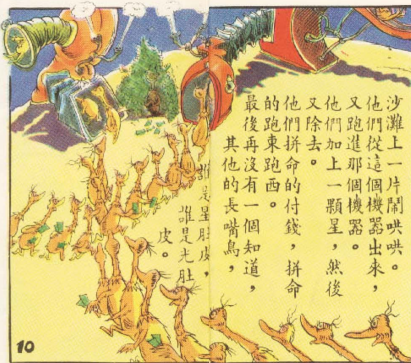 沙灘上一片鬧哄哄。
他們從這個機器出來，
又跑進那個機器。
他們加上一顆星，然後
又除去。
他們拼命的付錢，拼命
的跑東跑西。
最後再沒有一個知道，
其他的長嘴鳥，
誰是星肚皮，
誰是光肚
皮。
10